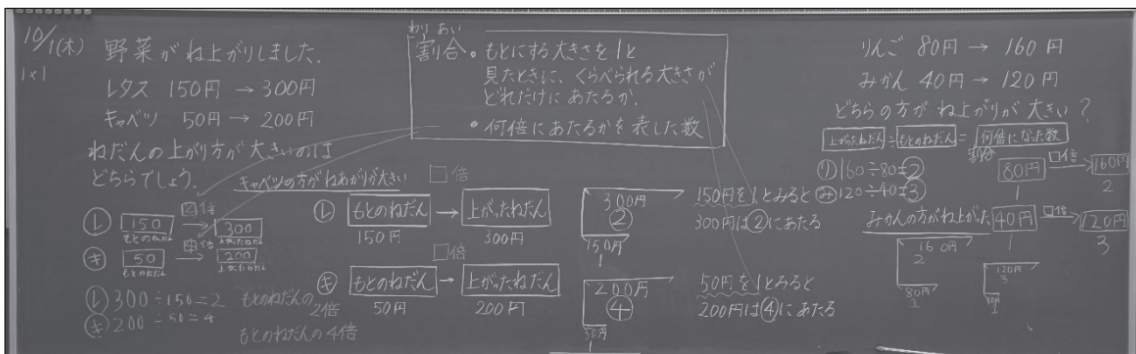 10/1(木)
1×1
野菜がね上がりしました.
レタス 150円 → 300円
キャベツ 50円 → 200円
ねだんの上がり方が大きいのは
どちらでしょう.
キャベツの方がねあがりが大きい
レ 150 → 300
②倍
もとのねだん 上がったねだん
キ 50 → 200
④倍
もとのねだん 上がったねだん
レ 300÷150=2 もとのねだんの2倍
キ 200÷50=4 もとのねだんの4倍
わりあい
割合 • もとにする大きさを1と
見たときに、くらべられる大きさが
どれだけにあたるか.
• 何倍にあたるかを表した数
□倍
レ もとのねだん → 上がったねだん
150円 300円
□倍
キ もとのねだん → 上がったねだん
50円 200円
300円
②
150円
1
150円を1とみると
300円は②にあたる
200円
④
50円
1
50円を1とみると
200円は④にあたる
りんご 80円 → 160円
みかん 40円 → 120円
どちらの方がね上がりが大きい?
上がったねだん÷もとのねだん=何倍になった数
割合
り 160÷80=②
み 120÷40=③
みかんの方がね上がった
80円 □倍 → 160円
1 2
40円 □倍 → 120円
1 3
160円
2
80円
1
120円
3
1